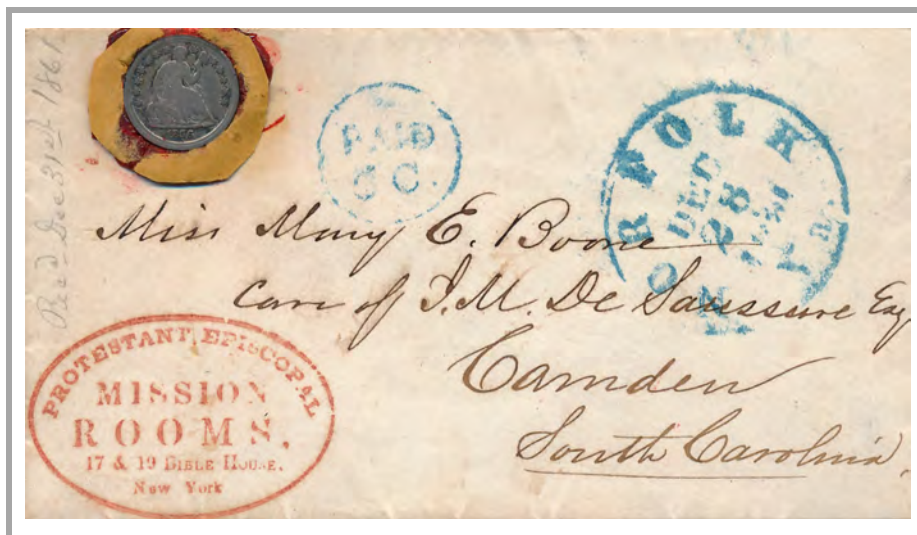 Rec'd Dec 31st 1861
PAID
5 C.
NORFOLK Va.
DEC
28
1861
Miss Mary E. Boone
Care of J. M. De Saussure Esq
Camden
South Carolina.
PROTESTANT EPISCOPAL
MISSION
ROOMS,
17 & 19 BIBLE HOUSE.
New York